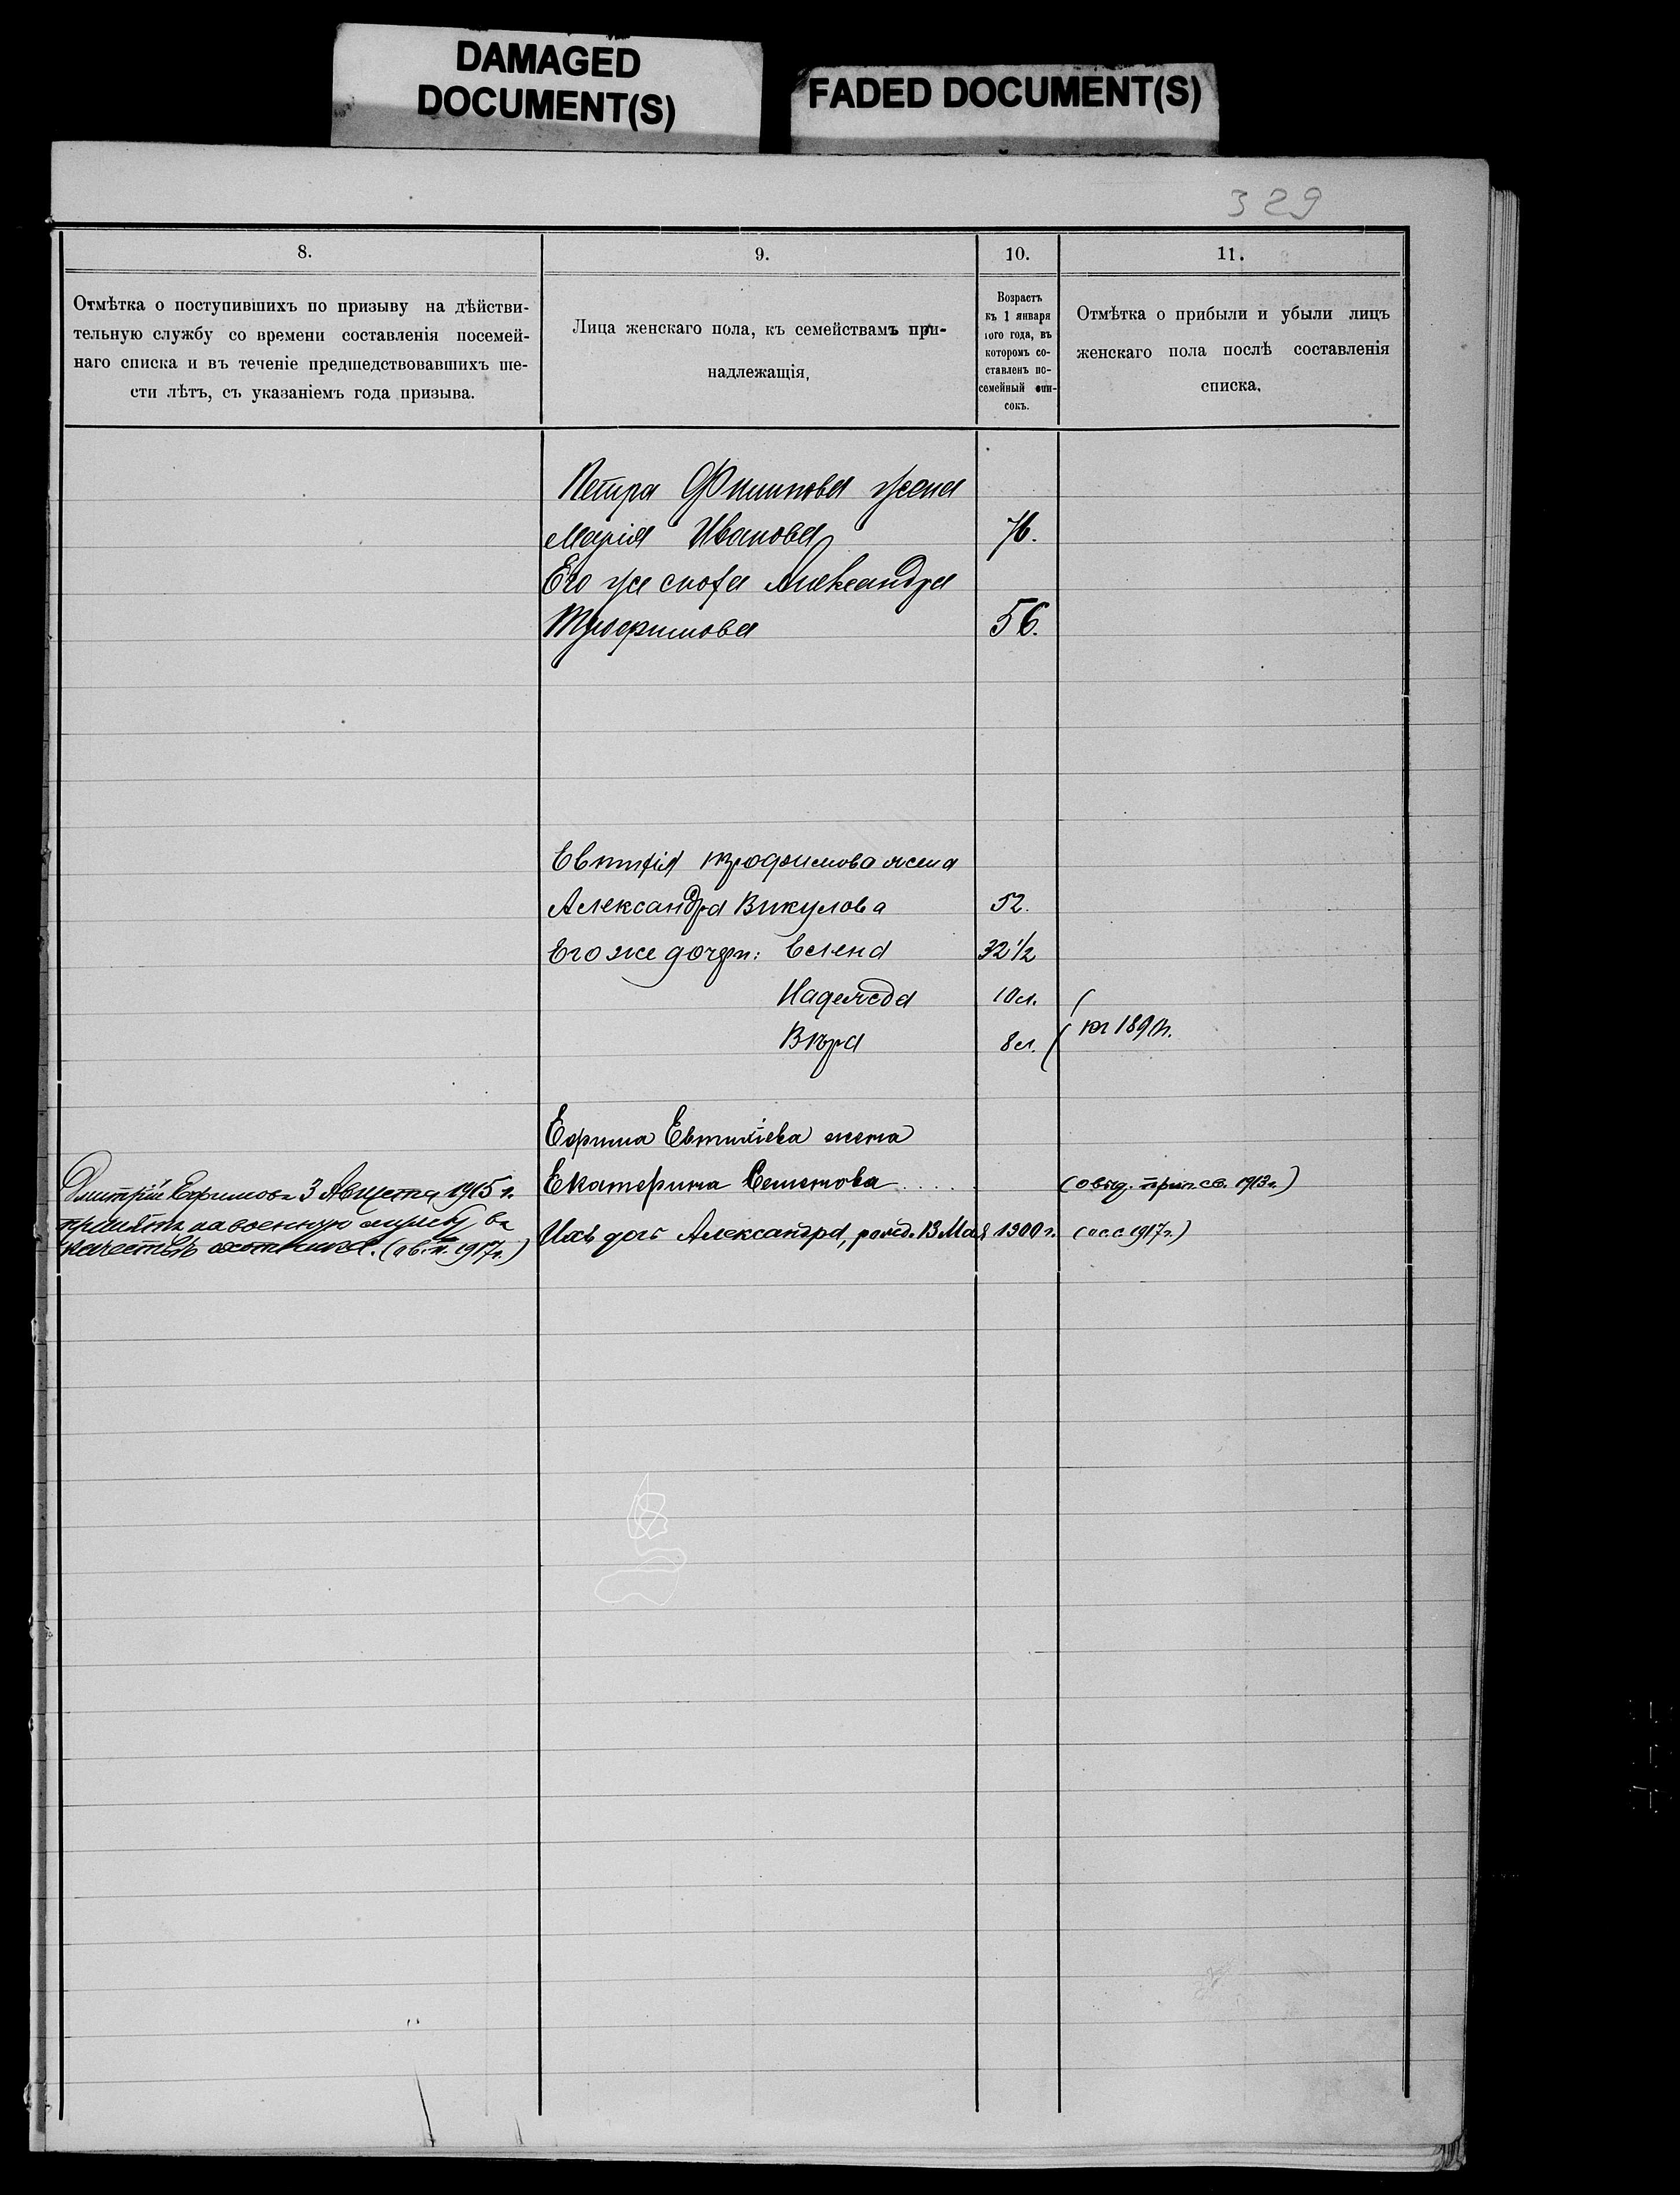 DAMAGED
DOCUMENT(S)
FADED DOCUMENT(S)
329
8.
Отмѣтка о поступившихъ по призыву на дѣйстви-
тельную службу со времени составленія посемей-
наго списка и въ теченіе предшедствовавшихъ ше-
сти лѣтъ, съ указаніемъ года призыва.
9.
Лица женскаго пола, къ семействамъ при-
надлежащія,
10.
Возрастъ
къ 1 января
того года, въ
которомъ со-
ставленъ по-
семейный спи-
сокъ.
11.
Отмѣтка о прибыли и убыли лицъ
женскаго пола послѣ составленія
списка.
Петра Филипова жена
Марія Иванова 76.
Его же сноха Александра
Трофимова 56.
Евтихія Трофимова жена
Александра Викулова 52.
Его же дочери: Елена 32 1/2
Надежда 10 л.
Вѣра 8 л.
Ефима Евтихіева жена
Екатерина Семенова
Ихъ дочь Александра, рожд. 13 Мая 1900 г.
(ос.с 1917 г.)
Дмитрій Ефимовъ 3 Августа 1915 г.
принятъ на военную службу въ
качествѣ охотника. (об. п. 1917 г.)